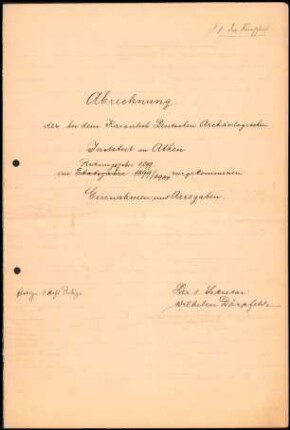 Abrechnung
der bei dem Kaiserlich Deutschen Archäologischen
Institut in Athen
Rechnungsjahr 1899
im Etatsjahre 1899/1900 vorgekommenen
Einnahmen und Ausgaben.
Der I. Sekretar
Wilhelm Dörpfeld